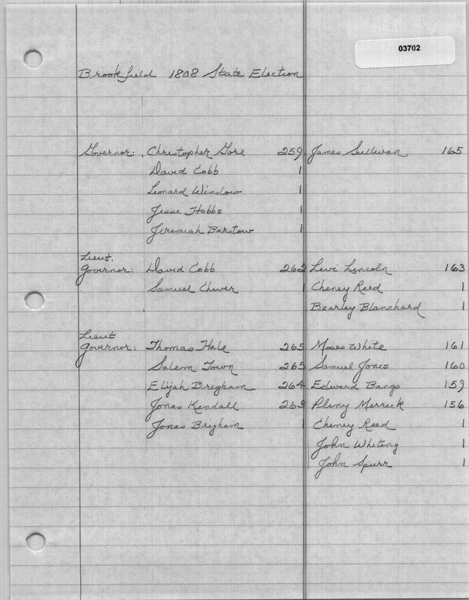 03702
Brookfield 1808 State Election
Governor: Christopher Gore 259 James Sullivan 165
David Cobb 1
Leonard Winslow 1
Jesse Hobbs 1
Jeremiah Barstow 1
Lieut.
Governor: David Cobb 262 Levi Lincoln 163
Samuel 1 Cheney Reed 1
Bearley Blanchard 1
Lieut
Governor: Thomas Hale 265 Moses White 161
Salem Town 265 Samuel Jones 160
Elijah Brigham 264 Edward Bangs 159
Jonas Kendall 263 Pliny Merrick 156
Jonas Brigham 1 Cheney Reed 1
John Whiting 1
John Spurr 1